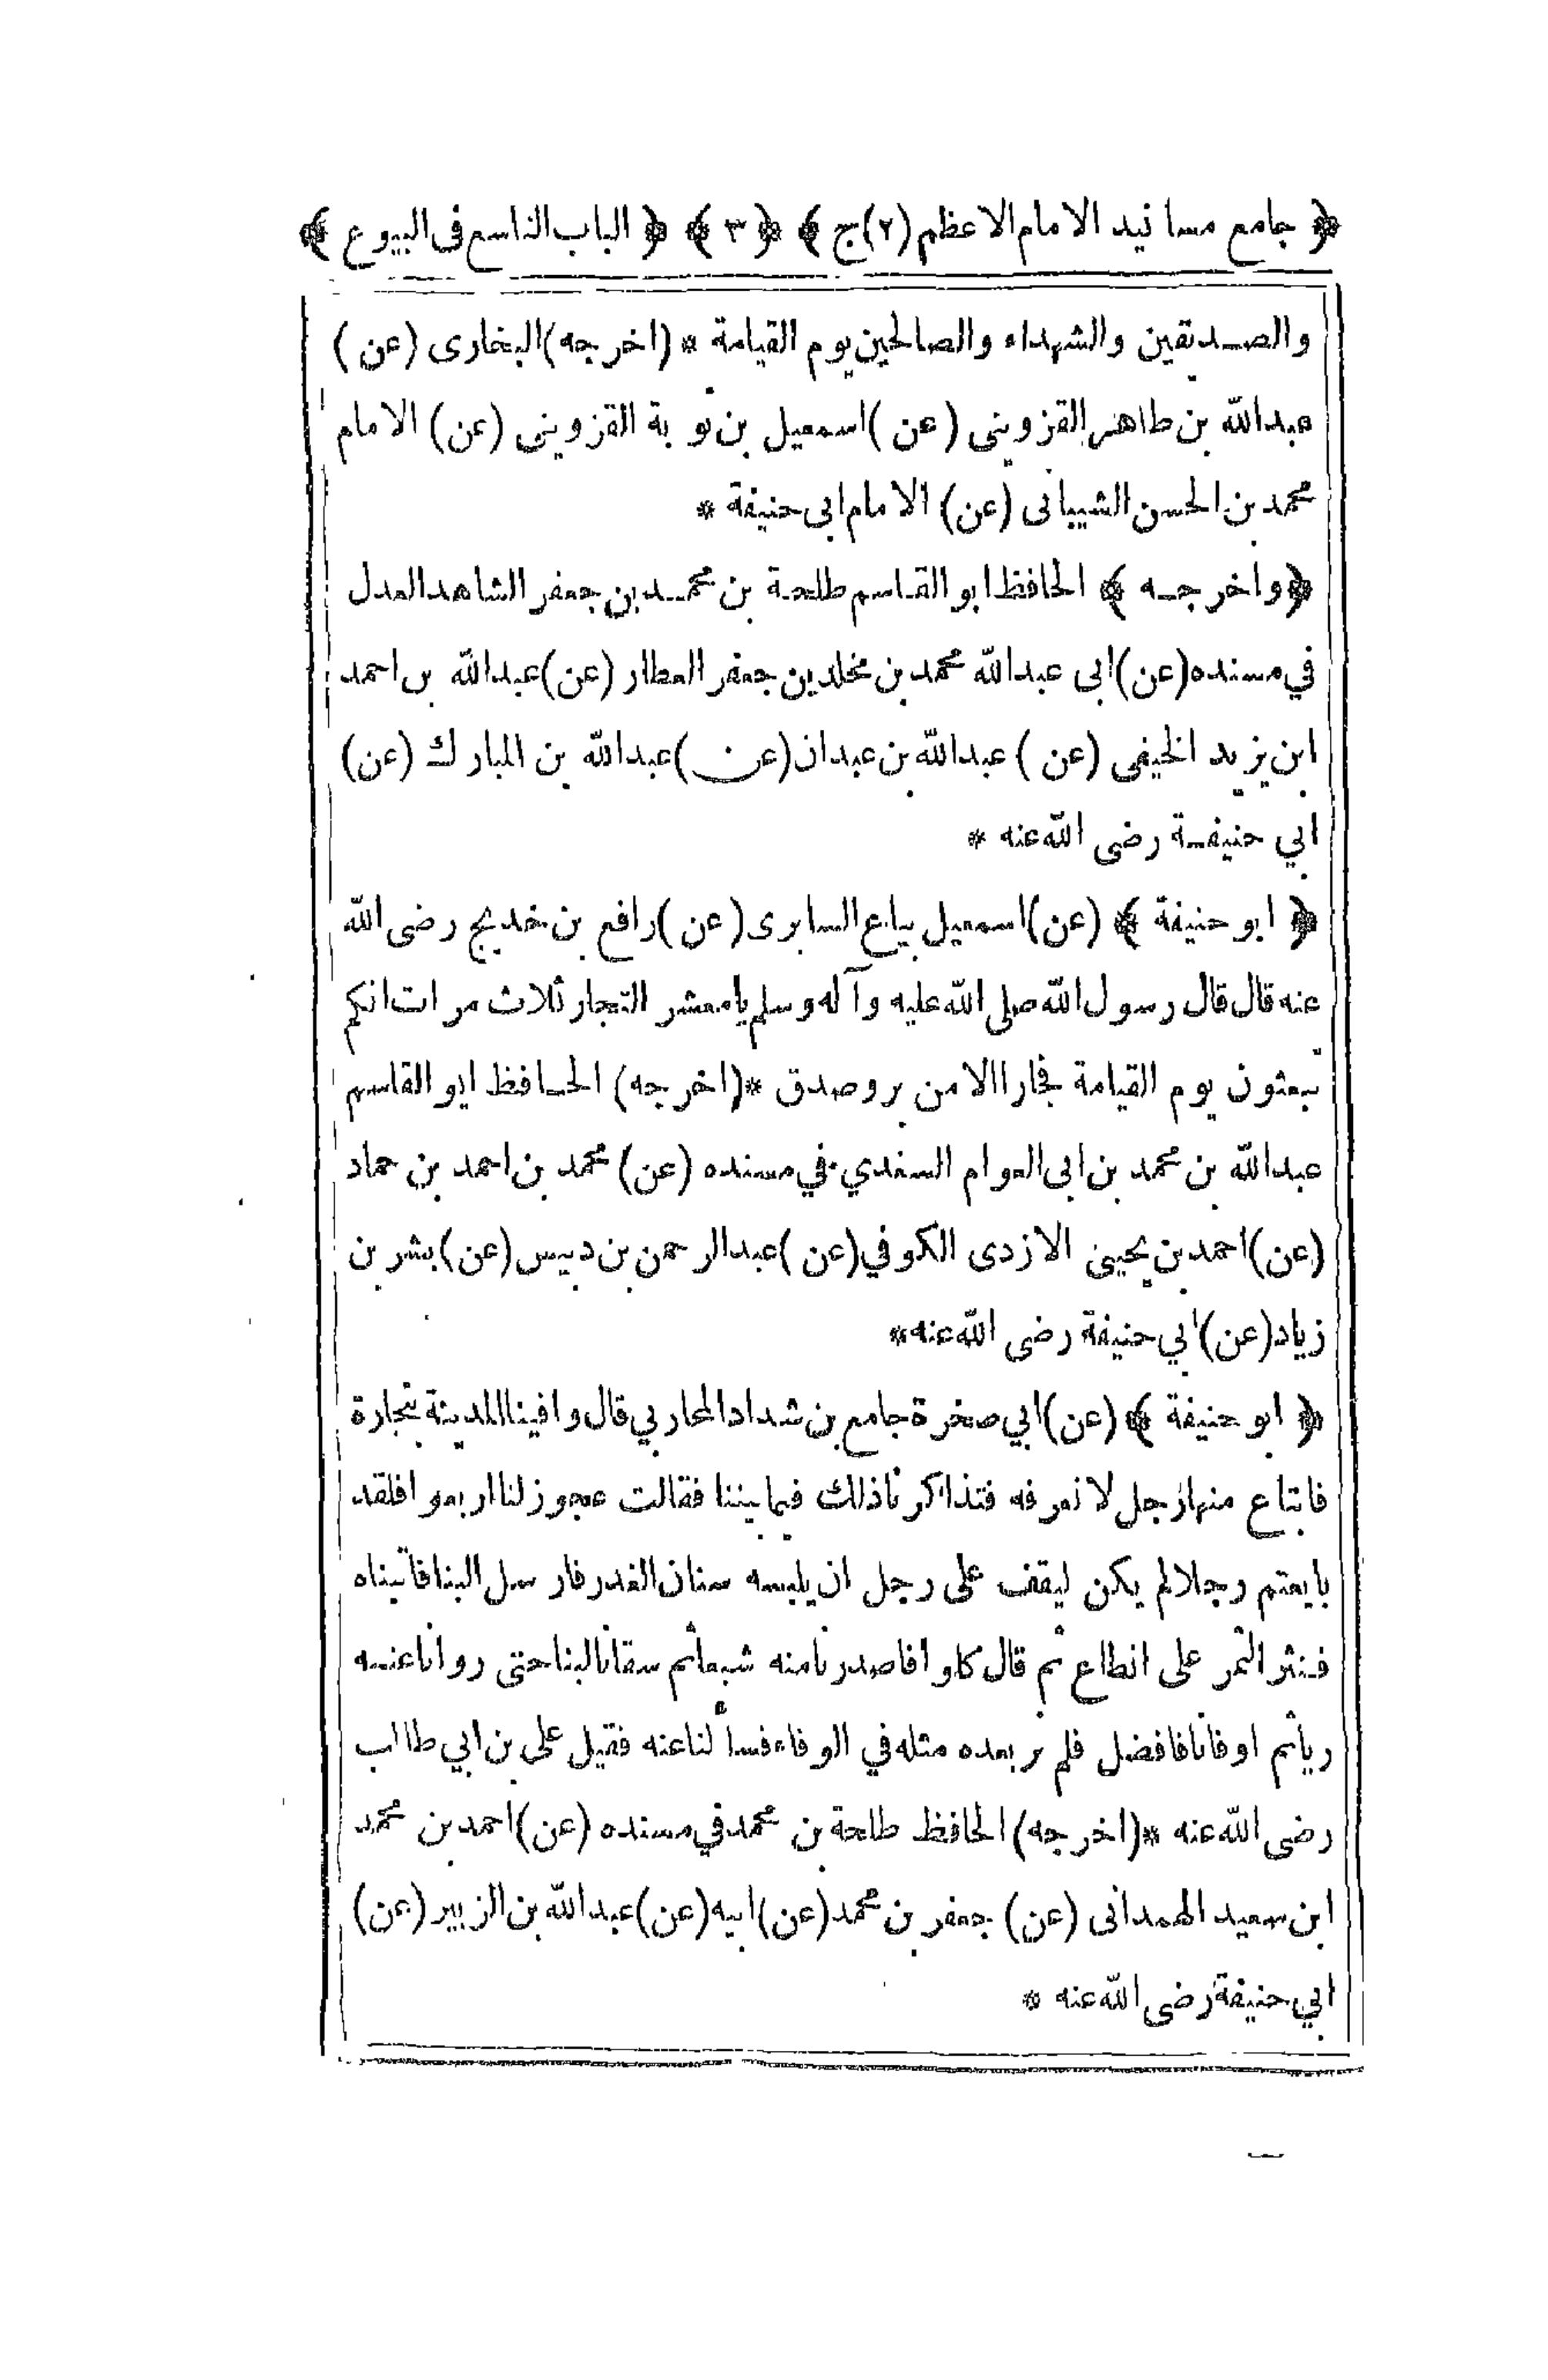 ﴿ جامع مسانيد الامام الاعظم (٢) ج ﴾ ﴿ ٣ ﴾ ﴿ الباب التاسع فى البيوع ﴾
والصديقين والشهداء والصالحين يوم القيامة * (اخرجه) البخارى (عن)
عبدالله بن طاهر القزوينى (عن) اسمعيل بن توبة القزوينى (عن) الامام
محمد بن الحسن الشيبانى (عن) الامام ابى حنيفة *
﴿ واخرجه ﴾ الحافظ ابو القاسم طلحة بن محمد بن جعفر الشاهد العدل
في مسنده (عن) ابى عبدالله محمد بن مخلد بن جعفر العطار (عن) عبدالله بن احمد
ابن يزيد الخيفى (عن) عبدالله بن عبدان (عن) عبدالله بن المبارك (عن)
ابي حنيفة رضى الله عنه *
﴿ ابو حنيفة ﴾ (عن) اسمعيل بياع السابرى (عن) رافع بن خديج رضى الله
عنه قال قال رسول الله صلى الله عليه وآله وسلم يا معشر التجار ثلاث مرات انكم
تبعثون يوم القيامة فجارا الا من بر وصدق * (اخرجه) الحافظ ابو القاسم
عبدالله بن محمد بن ابى العوام السغدي في مسنده (عن) محمد بن احمد بن حماد
(عن) احمد بن يحيى الازدى الكوفي (عن) عبدالرحمن بن دبيس (عن) بشر بن
زياد (عن) ابي حنيفة رضى الله عنه *
﴿ ابو حنيفة ﴾ (عن) ابي صخرة جامع بن شداد المحاربي قال وافينا المدينة بتجارة
فابتاع منها رجل لا نعرفه فتذاكرنا ذلك فيما بيننا فقالت عجوز لنا اربعوا فلقد
بايعتم رجلا لم يكن ليقف على رجل ان يلبسه سنان الغدر فارسل الينا فاتيناه
فنثر التمر على انطاع ثم قال كلوا فاصدرنا منه شبعا ثم سقانا لبنا حتى روانا عنه
ريا ثم اوفانا فافضل فلم نر بعده مثله في الوفاء فسألنا عنه فقيل على بن ابي طالب
رضى الله عنه * (اخرجه) الحافظ طلحة بن محمد في مسنده (عن) احمد بن محمد
ابن سعيد الهمدانى (عن) جعفر بن محمد (عن) ابيه (عن) عبدالله بن الزبير (عن)
ابي حنيفة رضى الله عنه *